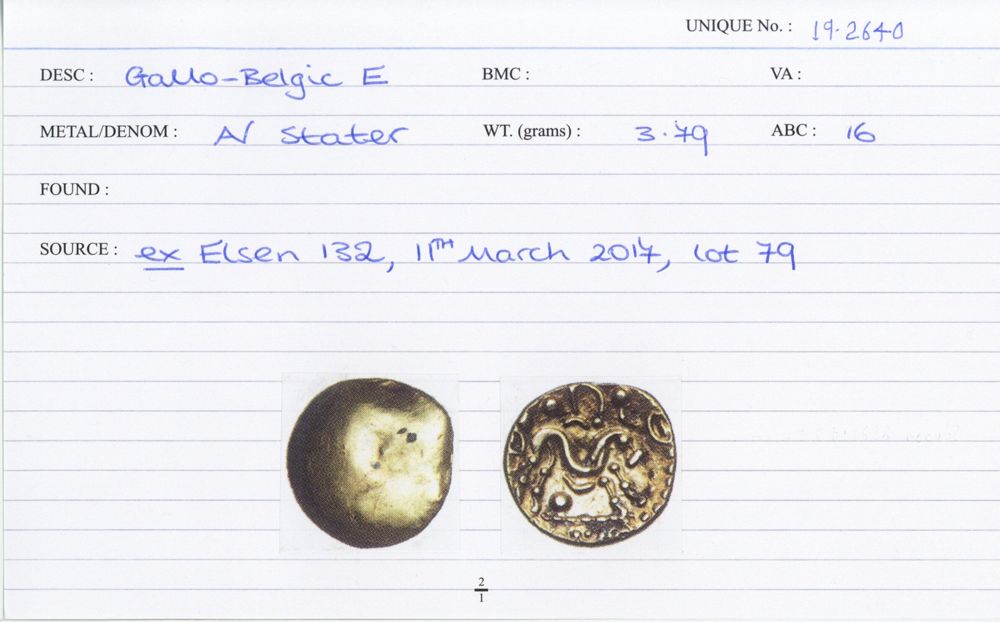 UNIQUE No. : 19.2640
DESC : Gallo-Belgic E BMC : VA :
METAL/DENOM : A/ Stater WT. (grams) : 3.79 ABC : 16
FOUND :
SOURCE : ex Elsen 132, 11TH March 2017, lot 79
2
1